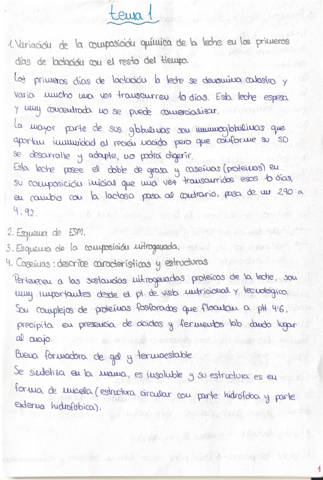 tema 1.
1. Variación de la composición química de la leche en los primeros
días de lactación con el resto del tiempo.
Los primeros días de lactación la leche se denomina calostro y
varía mucho una vez transcurren 10 días. Esta leche espesa
y muy concentrada no se puede comercializar.
La mayor parte de sus globulinas son inmunoglobulinas que
aportan inmunidad al recién nacido pero que conforme su SD
se desarrolle y adapte, no podrá digerir.
Esta leche posee el doble de grasa y caseínas (proteínas) en
su composición inicial que una vez transcurridos esos 10 días,
en cambio con la lactosa pasa al contrario, pasa de un 2'90 a
4'92.
2. Esquema de ESM.
3. Esquema de la composición nitrogenada.
4. Caseínas: describe características y estructuras
Pertenecen a las sustancias nitrogenadas proteicas de la leche, son
muy importantes desde el pt. de vista nutricional y tecnológico.
Son complejos de proteínas fosforadas que floculan a pH 4'6,
precipita en presencia de ácidos y fermentos lab dando lugar
al cuajo.
Buena formadora de gel y termoestable
Se sintetiza en la mama, es insoluble y su estructura es en
forma de micela (estructura circular con parte hidrófoba y parte
externa hidrofóbica).
1